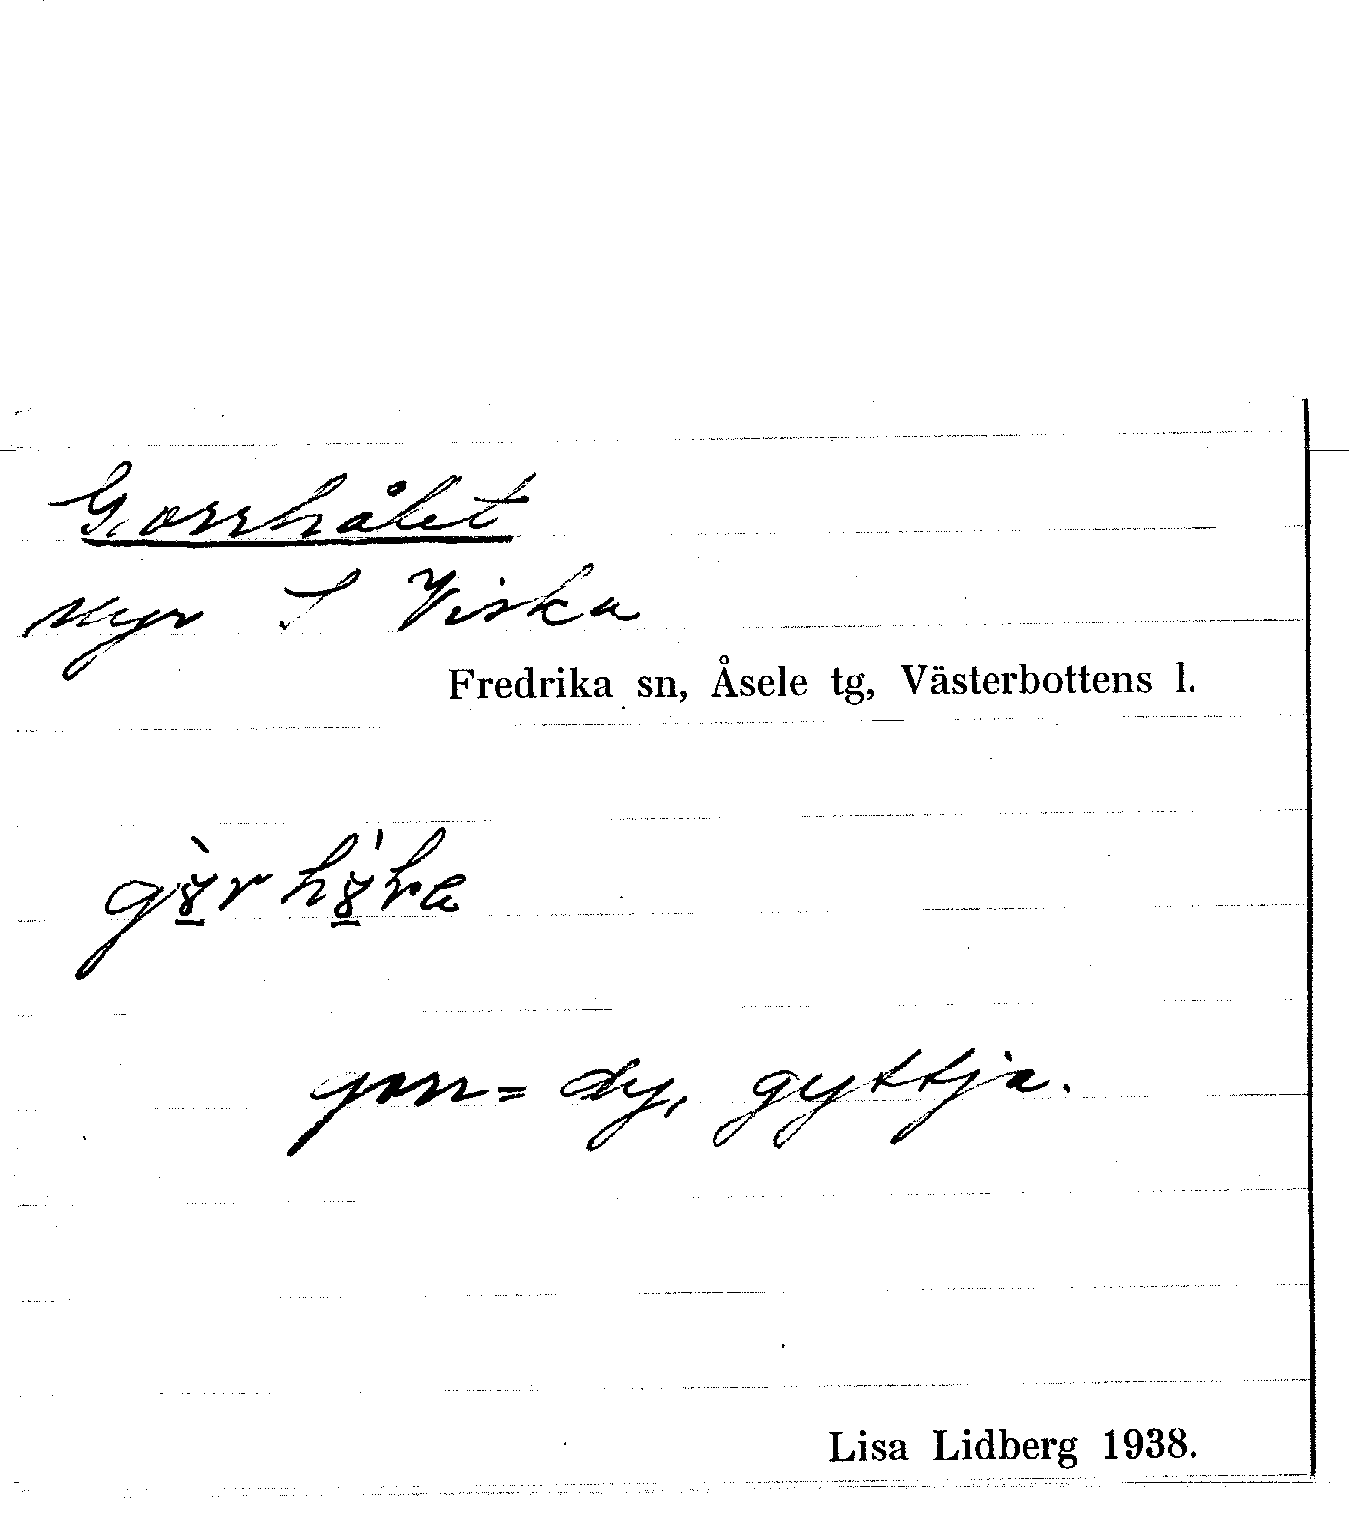 Gorrhålet
Myr S Viska
Fredrika sn, Åsele tg, Västerbottens l.
gorr = dy, gyttja.
Lisa Lidberg 1938.